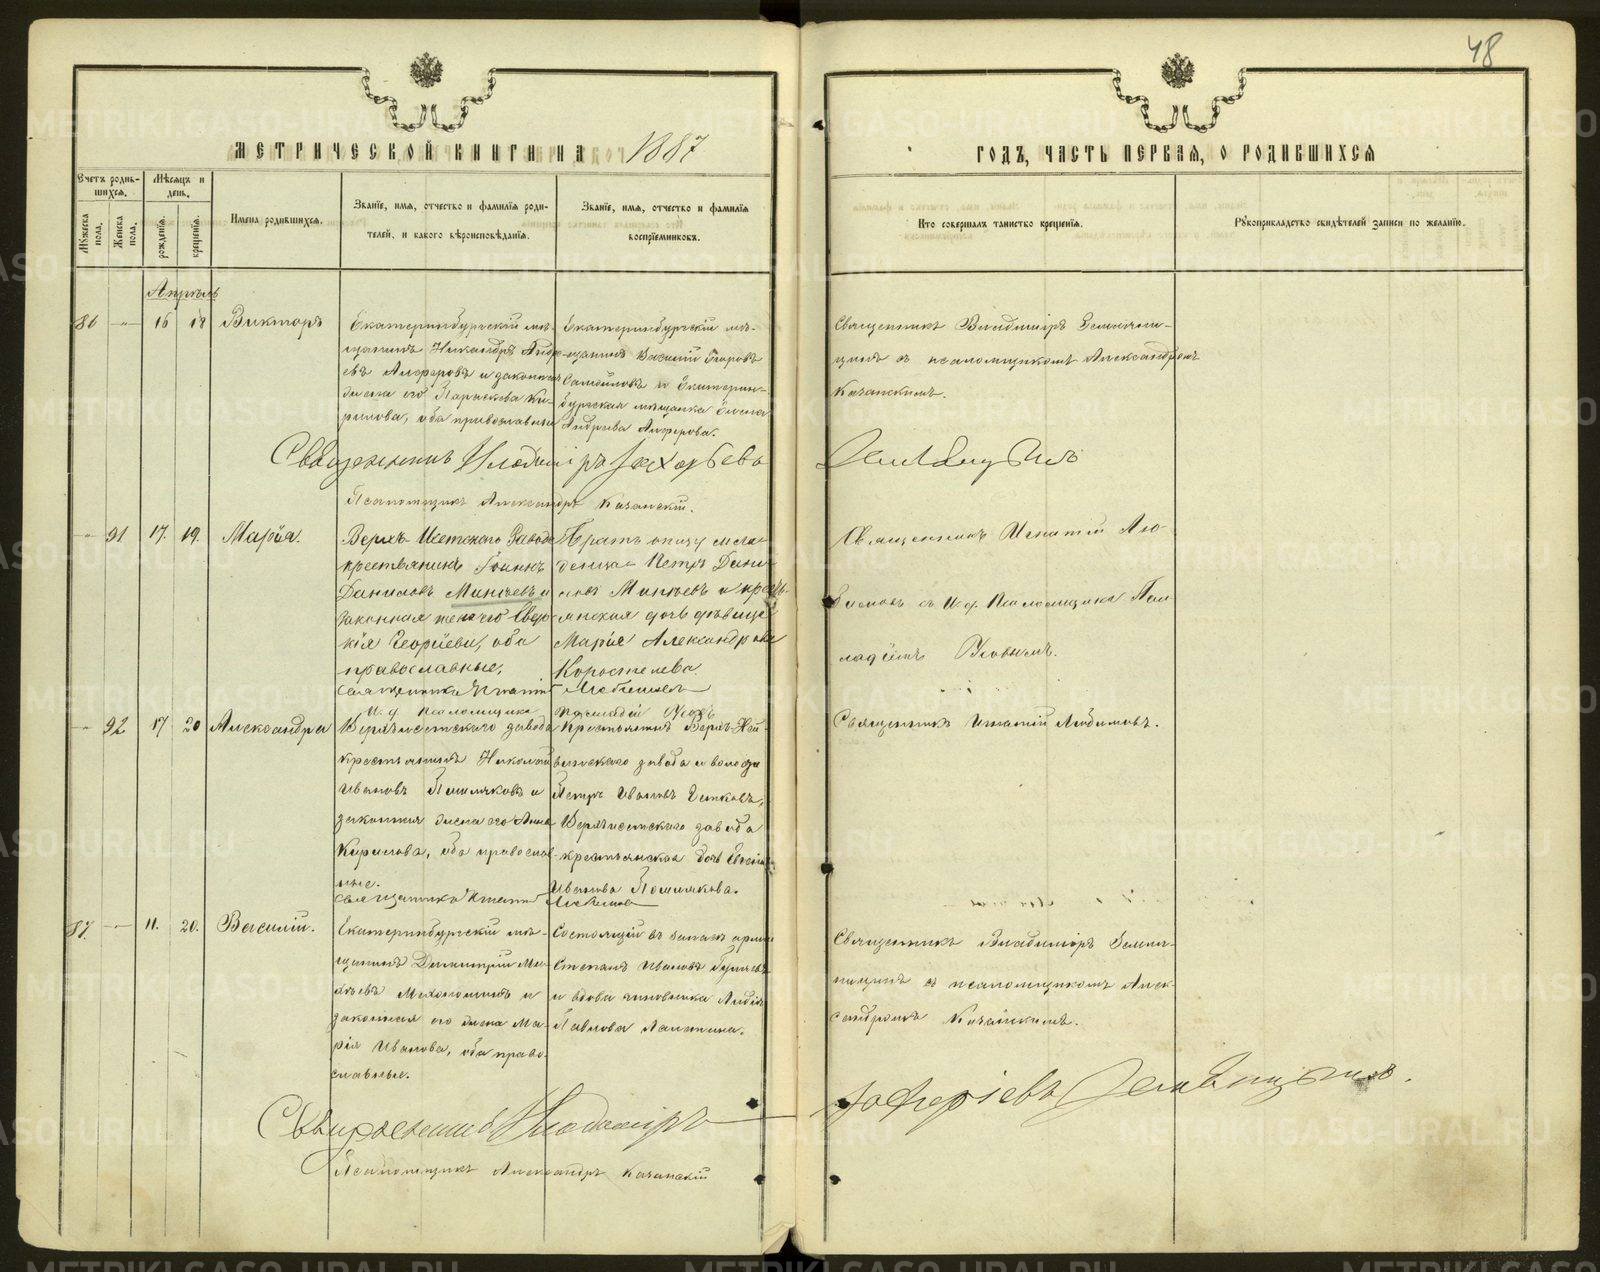 48
МЕТРИЧЕСКОЙ КНИГИ НА 1887
ГОДЪ, ЧАСТЬ ПЕРВАЯ, О РОДИВШИХСЯ
Счетъ роди-
вшихся.
Мѣсяцъ и
день.
Мужеска пола.
Женска пола.
рожденія.
крещенія.
Имена родившихся.
Званіе, имя, отчество и фамилія роди-
телей, и какого вѣроисповѣданія.
Званіе, имя, отчество и фамилія
воспріемниковъ.
Кто совершалъ таинство крещенія.
Рукоприкладство свидѣтелей записи по желанію.
Апрѣль
86 — 16 18 Викторъ
Екатеринбургскій мѣ-
щанинъ Никандръ Андре-
евъ Алферовъ и законная
жена его Параскева Ки-
рилова, оба православные
Екатеринбургскій мѣ-
щанинъ Василій Егоровъ
Самойловъ и Екатерин-
бургская мѣщанка Елена
Андреева Алферова.
Священникъ Владиміръ Земляни-
цынъ съ псаломщикомъ Александромъ
Казанскимъ.
Священникъ Владиміръ Захарьевъ Земляницынъ
Псаломщикъ Александръ Казанскій.
— 91 17. 19. Марія.
Верхъ-Исетскаго Завода
крестьянинъ Іоаннъ
Даниловъ Минѣевъ и
законная жена его Евдо-
кія Георгіева, оба
православные.
Братъ отцу мла-
денца Петръ Дани-
ловъ Минѣевъ и кресть-
янская дочь дѣвица
Марія Александрова
Коростелева.
Священникъ Игнатій Лю-
бимовъ съ И. д. Псаломщика Пал-
ладіемъ Усовымъ.
Священникъ Игнатій Любимовъ
И. д. Псаломщика Палладій Усовъ
— 92 17 20 Александра
Верхъисетскаго завода
крестьянинъ Николай
Ивановъ
законная жена его Анна
Кирилова, оба православ-
ные.
Крестьянинъ Верхъ-Ней-
винскаго завода и волости
Петръ Ивановъ
Верхъисетскаго завода
крестьянская дочь
Иванова
Священникъ Игнатій Любимовъ.
Священникъ Игнатій Любимовъ
87. — 11. 20. Василій.
Екатеринбургскій мѣ-
щанинъ Димитрій Ми-
хѣевъ Махонинъ и
законная его жена Ма-
рія Иванова, оба право-
славные.
Состоящій въ запасѣ арміи
Степанъ Ивановъ
и вдова чиновника Лидія
Павлова
Священникъ Владиміръ Земля-
ницынъ съ псаломщикомъ Алек-
сандромъ Казанскимъ.
Священникъ Владиміръ Захаріевъ Земляницынъ.
Псаломщикъ Александръ Казанскій
METRIKI.GASO-URAL.RU